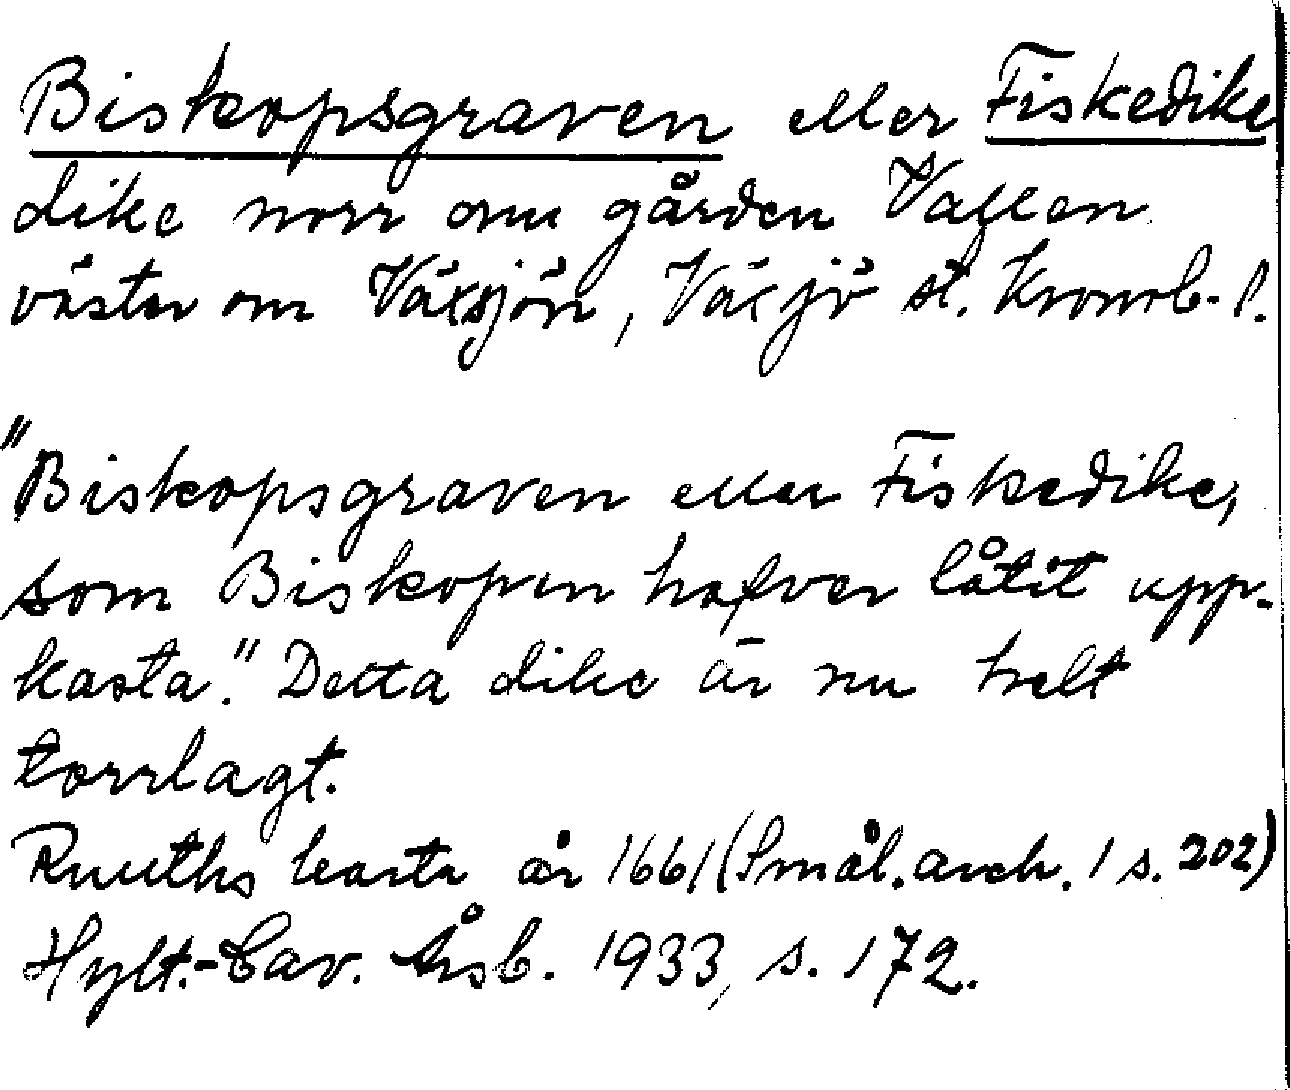 Biskopsgraven eller Fiskedike
dike norr om gården Vallen
väster om Växsjön, Växjö st. Kronob. l.
"Biskopsgraven eller Fiskedike,
som Biskopen hafver låtit upp-
kasta." Detta dike är nu helt
torrlagt.
Ruuths karta år 1661 (Smål. arch. 1 s. 202)
Hylt.-Cav. Årsb. 1933, s. 172.